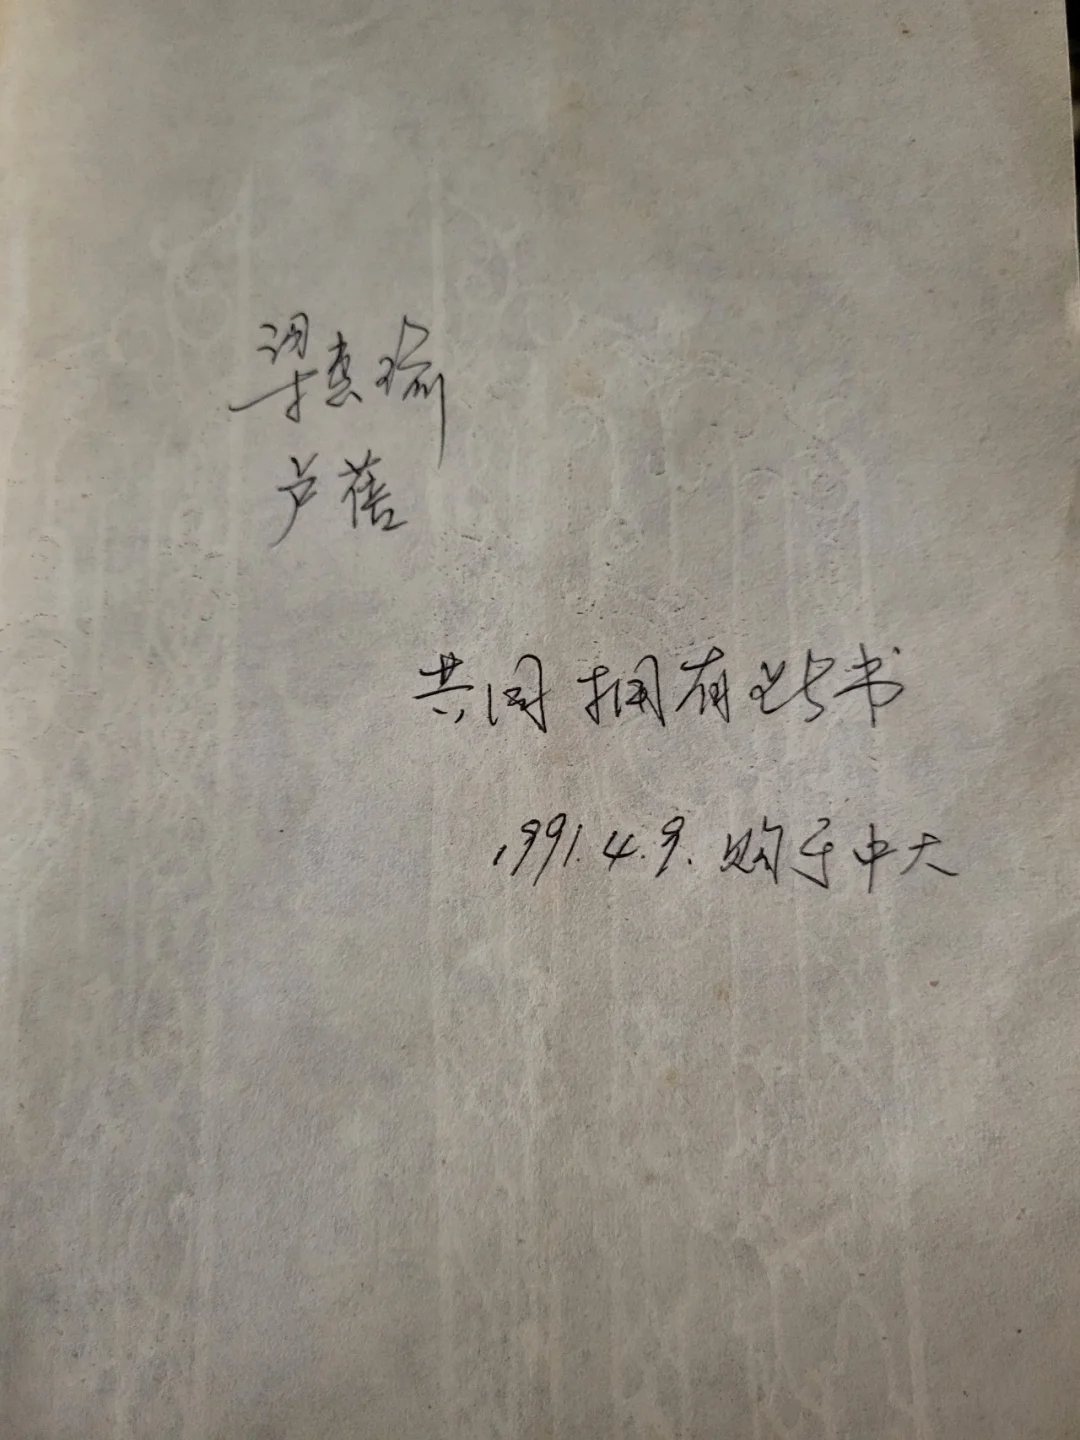 梁杰瑜
卢蓓
共同拥有此书
1991.4.9.购于中大